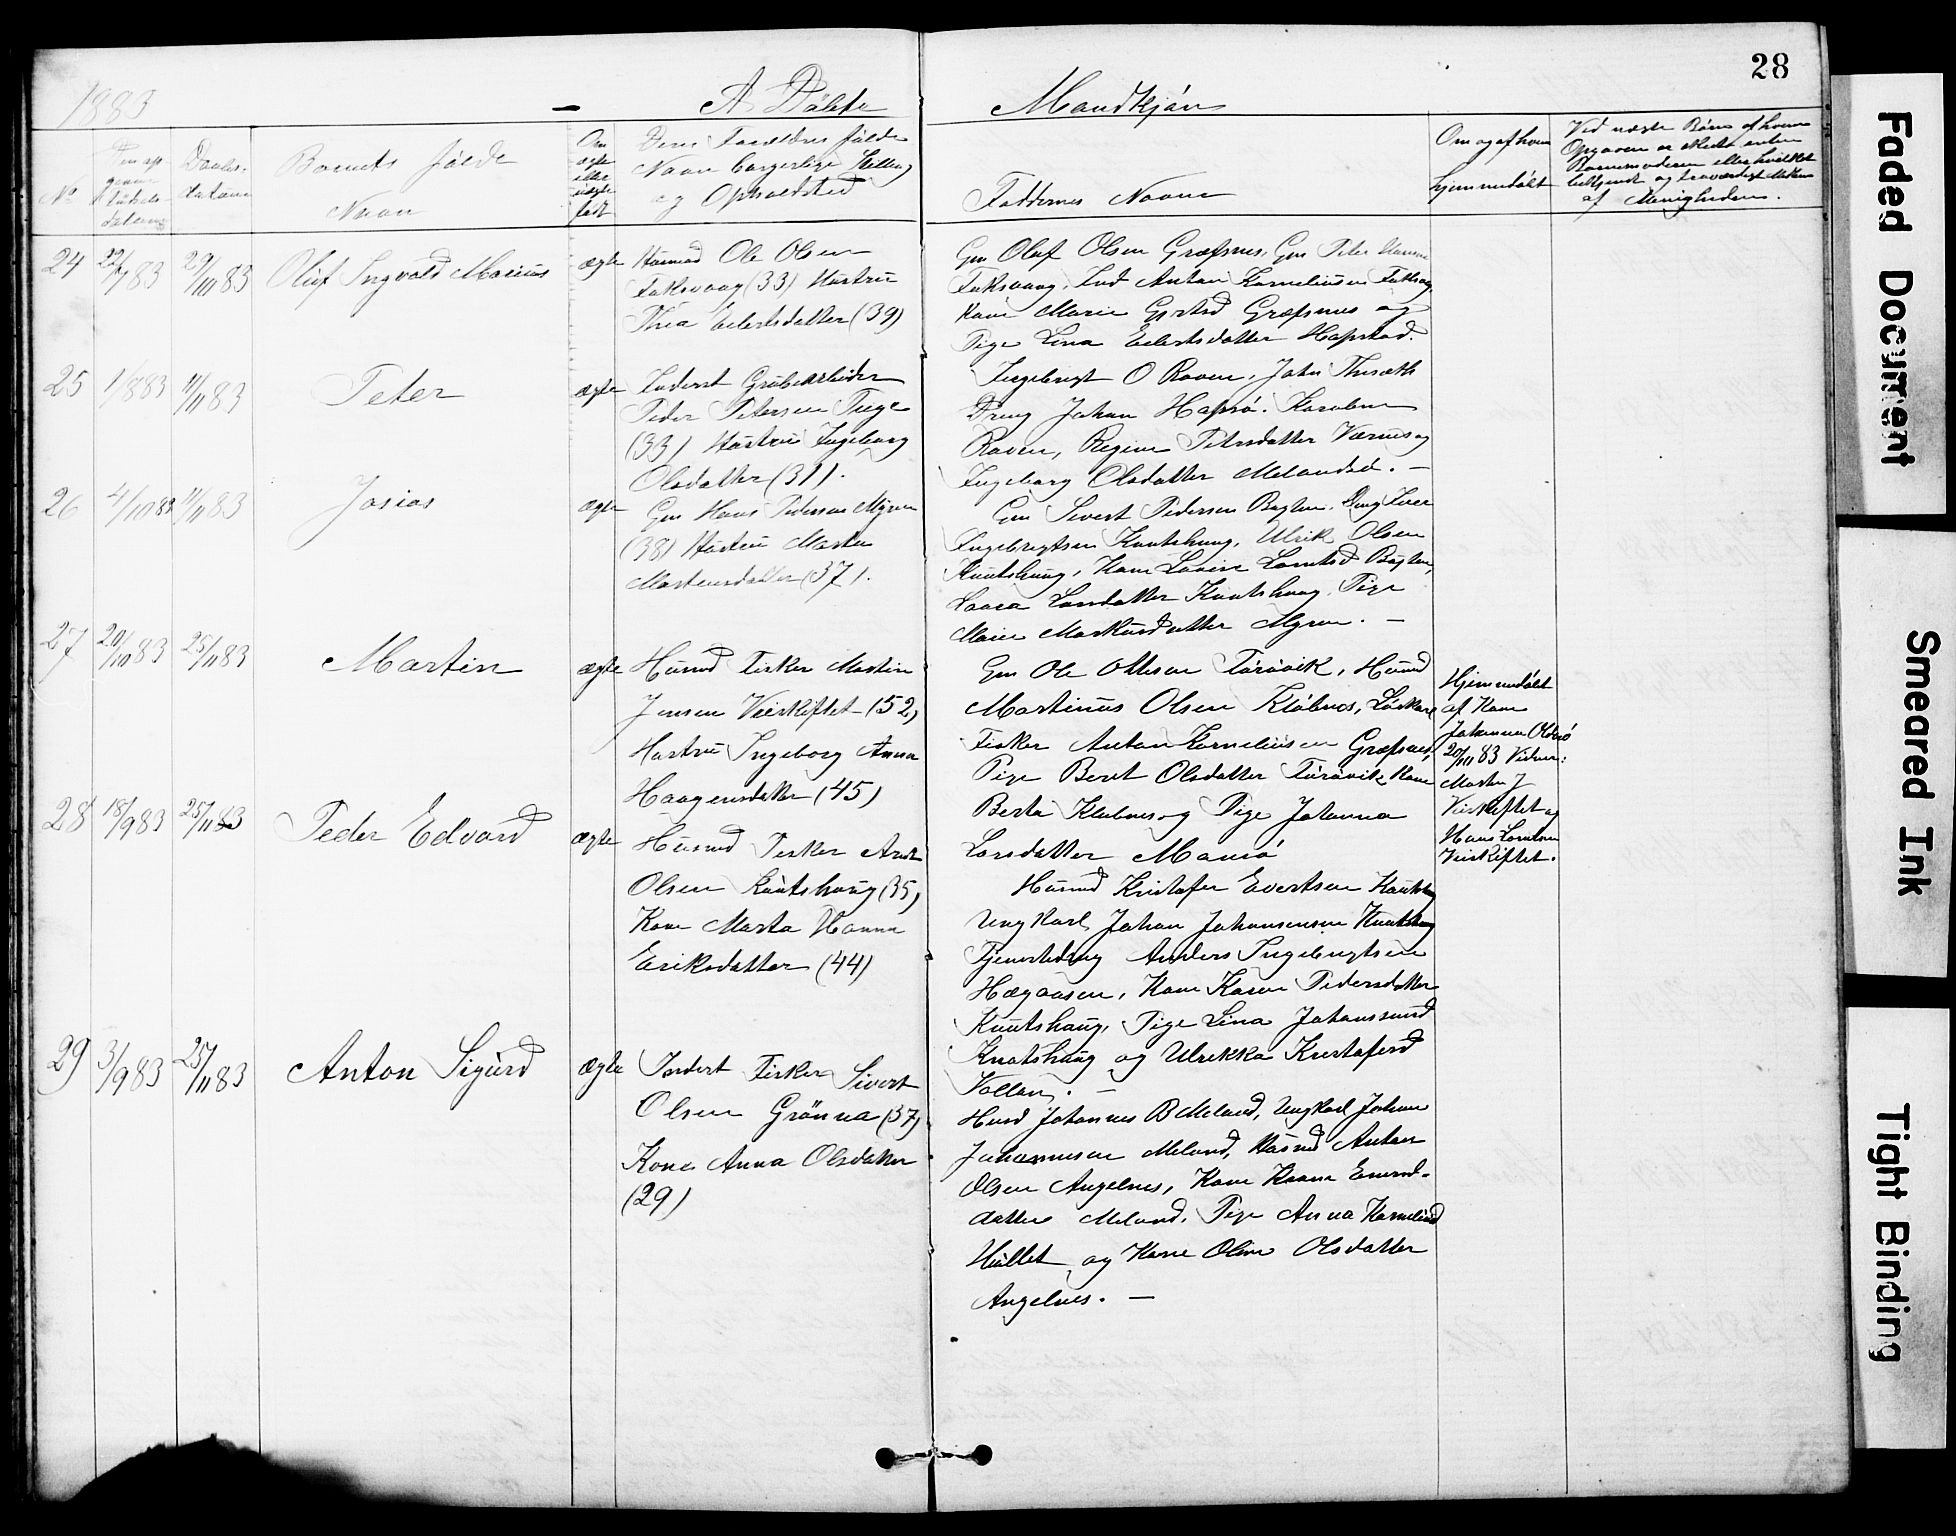 28
1883
A Döbte
Mandkjön
No
Daabs-
datum
Barnets fulde
Navn
Om
ægte
eller
uægte
født
Deres Forældres fulde
Navn borgerlige Stilling
og Opholdsted
Faddernes Navne
Om og af hvem
hjemmedöbt
Ved uægte Börn af hvem
Opgaven er skeet enten
Barnemoderen eller hvilket
bekjendt og troværdigt Medlem
af Menigheden.
24 22/7 83 29/10 83 Oluf Ingvald Marius ægte
Husmd Ole Olsen
Faksvaag (33) Hustru
Thea Eilertsdatter (39)
Gm Oluf Olsen Græfsnes, Gm Peter Hansen
Faksvaag, Ind Anton Korneliusen Faksvg,
Kone Marie Gjertsd Græfsnes og
Pige Lina Eilertsdatter Hopstad.
25 1/8 83 11/11 83 Peter ægte
Inderst Grubearbeider
Peder Petersen Tuge
(33) Hustru Ingeborg
Olsdatter (31).
Ingebrigt O Roven, John
Dreng Johan Hopsö. Karoline
Roven, Regine Petersdatter Værnes og
Ingeborg Olsdatter Melandsd. —
26 4/10 83 11/11 83 Josias ægte
Gm Hans Pedersen Myren
(38) Hustru Marta
Martensdatter (37).
Gm Sivert Pedersen Boglen, Ung Iver
Ingebrigtsen Knutshaug, Ulrik Olsen
Knutshaug, Kone Lovise Larntsd Boglen,
Laura Larsdatter Knutshaug, Pige
Marie Markusdatter Myren. —
27 20/10 83 25/11 83 Martin ægte
Husmd Fisker Martin
Jensen Veiskiftet (52)
Hustru Ingeborg Anna
Haagensdatter (45)
Gm Ole Ottesen Turövik, Husmd
Martinus Olsen Klöbnes, Löskarl
Fisker Anton Korneliusen Græfsnes,
Pige Berit Olsdatter Turövik Kone
Berta Klubnes og Pige Johanna
Larsdatter Mausö
Hjemmedöbt
af Kone
Johanna Oldsö
20/10 83 Vidner:
Marten J
Veiskiftet og
Hans Larntsen
Veiskiftet.
28 18/9 83 25/11 83 Peder Edvard ægte
Husmd Fisker Arnt
Olsen Knutshaug (35)
Kone Marta Hanna
Eriksdatter (44)
Husmd Kristofer Evertsen Knutshg
Ung Karl Johan Johansensen Knutshaug
Tjenestedreng Anders Ingebrigtsen
Hægaasen, Kone Karen Pedersdatter
Knutshaug, Pige Lina Johannesd
Knutshaug og Ulrikka Kristofersd
Vollan. —
29 3/9 83 25/11 83 Anton Sigurd ægte
Inderst Fisker Sivert
Olsen Grönna (37)
Kone Anna Olsdatter
(29)
Husd Johannes B Meland, Ungkarl Johan
Johannesen Meland, Husmd Anton
Olsen Angelnes, Kone Hanna Einersd-
datter Meland, Pige Anna Kornelisd
Hullet og Kone Oline Olsdatter
Angelnes. —
Faded Document
Smeared Ink
Tight Binding